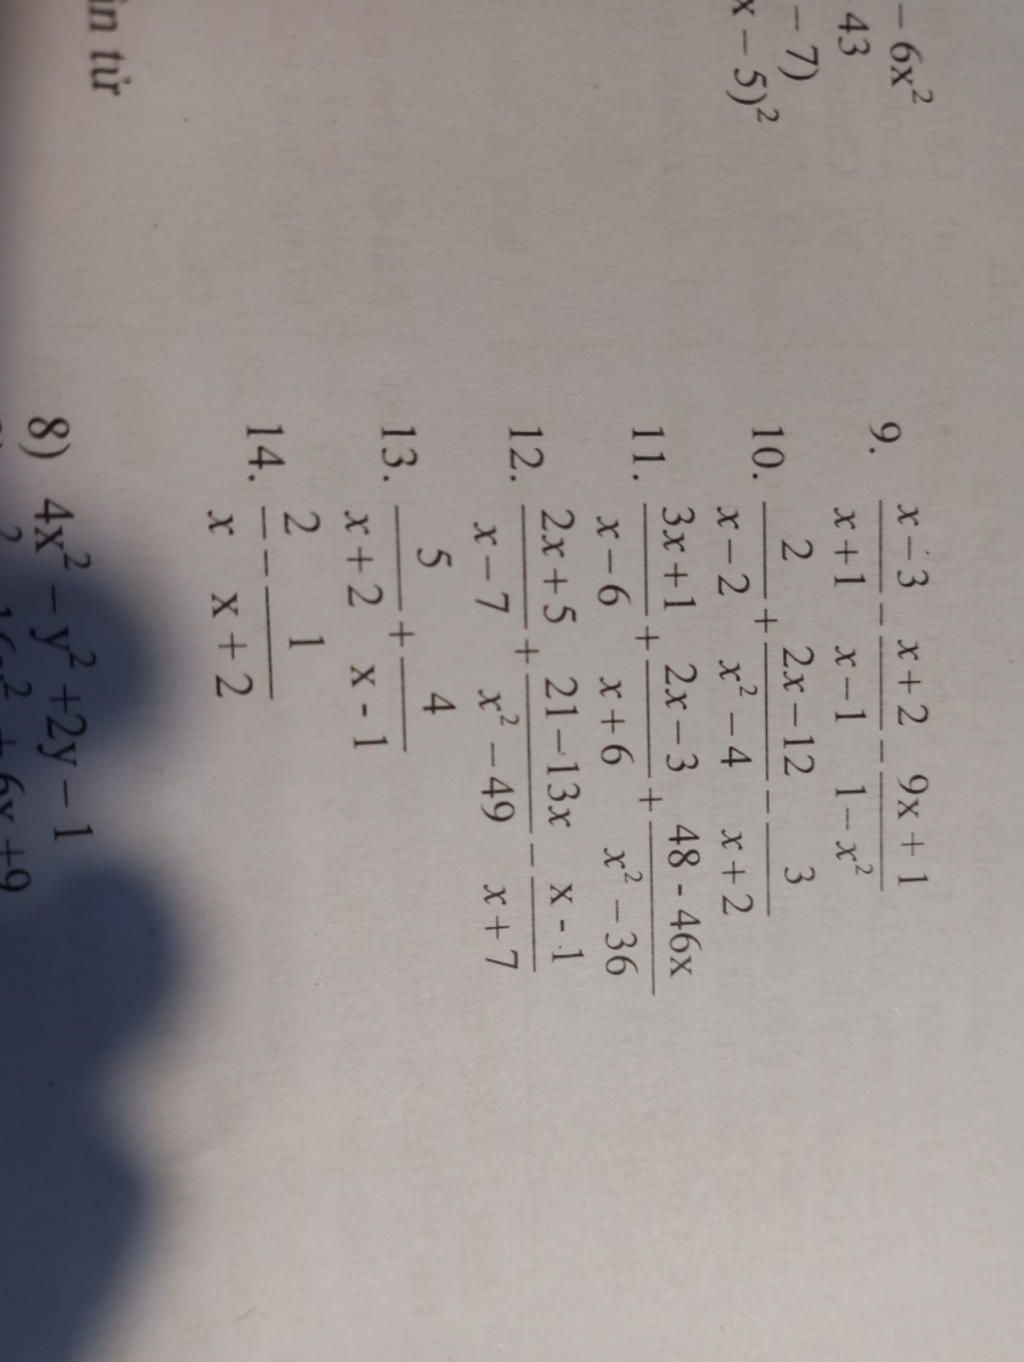 − 6x²
43
− 7)
x − 5)²
9. \frac{x−3}{x+1} − \frac{x+2}{x−1} − \frac{9x+1}{1−x²}
10. \frac{2}{x−2} + \frac{2x−12}{x²−4} − \frac{3}{x+2}
11. \frac{3x+1}{x−6} + \frac{2x−3}{x+6} + \frac{48 - 46x}{x²−36}
12. \frac{2x+5}{x−7} + \frac{21−13x}{x²−49} − \frac{x - 1}{x+7}
13. \frac{5}{x+2} + \frac{4}{x - 1}
14. \frac{2}{x} − \frac{1}{x + 2}
tử
8) 4x² − y² +2y − 1
6x +9